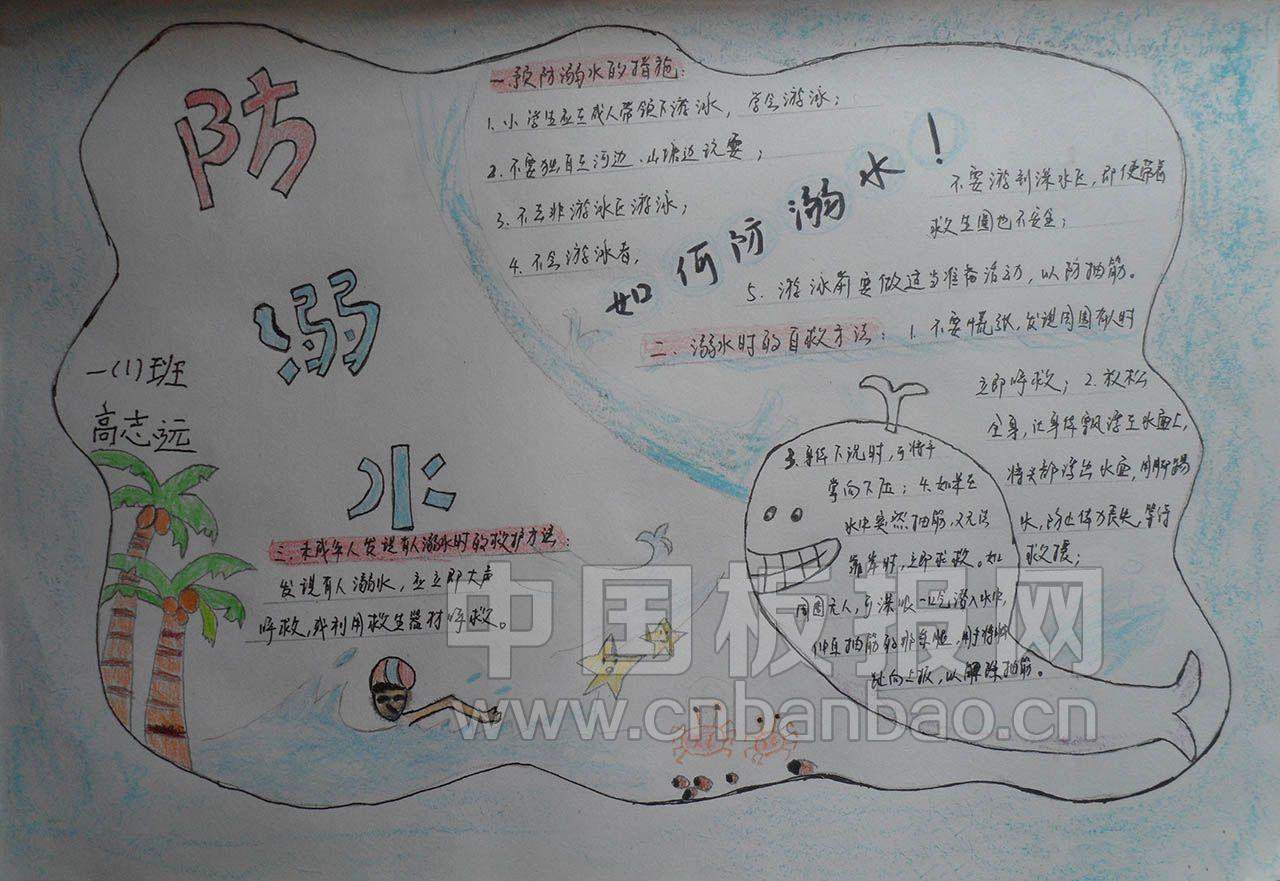 防
溺
水
一(1)班
高志远
一.预防溺水的措施：
1.小学生应在成人带领下游泳，学会游泳；
2.不要独自在河边、山塘边玩耍；
3.不去非游泳区游泳；
4.不会游泳者，
不要游到深水区，即使带着
救生圈也不安全；
如何防溺水！
5.游泳前要做适当准备活动，以防抽筋。
二.溺水时的自救方法：1.不要慌张，发现周围有人时
立即呼救；2.放松
全身，让身体飘浮在水面上，
将头部浮出水面，用脚踢
水，防止体力丧失，等待
救援；
3.身体下沉时，可将手
掌向下压；4.如果在
水中突然抽筋，又无法
靠岸时，立即求救。如
周围无人，可深吸一口气潜入水中，
伸直抽筋的那条腿，用手将脚
趾向上扳，以解除抽筋。
三.未成年人发现有人溺水时的救护方法：
发现有人溺水，应立即大声
呼救，或利用救生器材呼救。
中国板报网
www.cnbanbao.cn